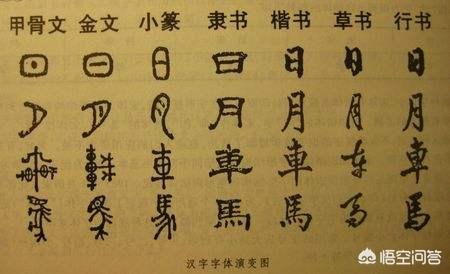 甲骨文 金文 小篆 隶书 楷书 草书 行书
日 日 日 日 日 日 日
月 月 月 月 月 月 月
車 車 車 車 車 车 車
馬 馬 馬 馬 馬 马 馬
汉字字体演变图
悟空问答